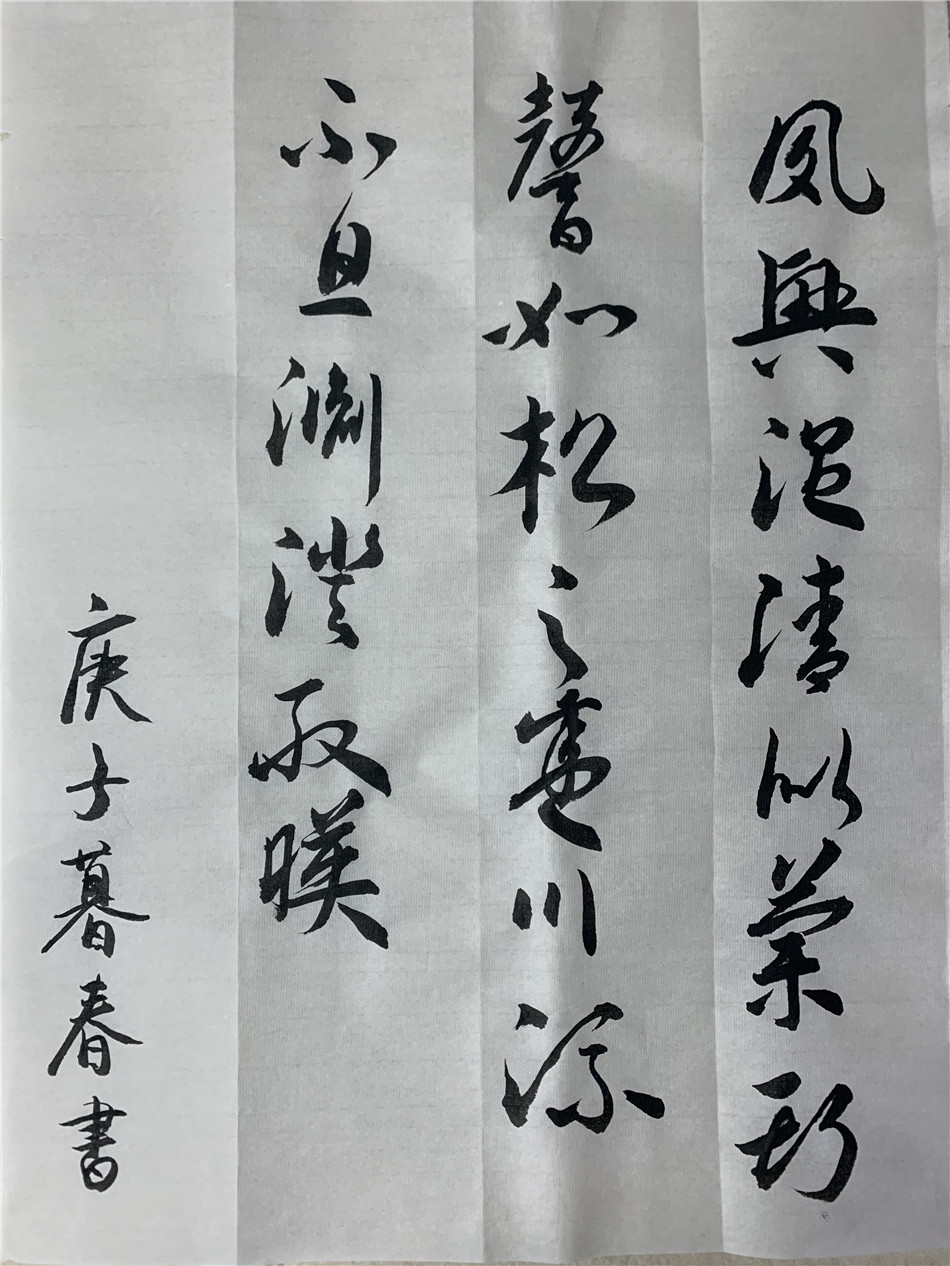 夙興温清似蘭斯
馨如松之盛川流
不息淵澄取暎
庚子暮春書